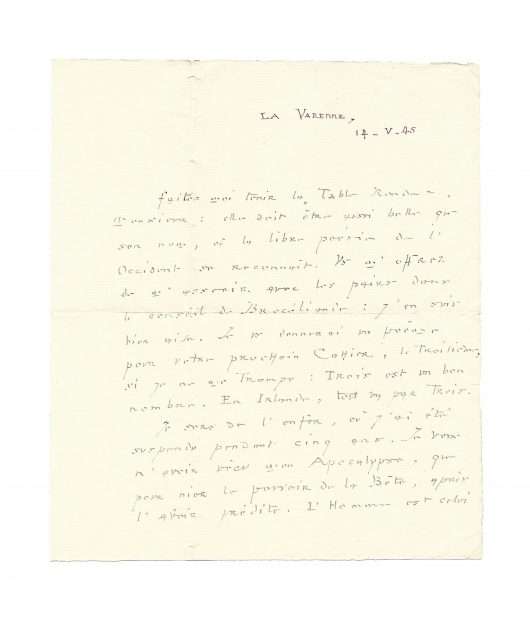 LA VARENNE,
14 - V - 45
Faites-moi tenir la Table Ronde,
: elle doit être aussi belle que
son nom, où la libre poésie de l'
Occident se reconnaît. Vs m'offrez
de m'asseoir avec les pairs dans
le conseil de Brocéliande : j'en suis
bien aise. Je vs donnerai un poème
pour votre prochain Cahier, le Troisième,
si je ne me Trompe : Trois est un bon
nombre. En Irlande, tout va par Trois.
Je sors de l'enfer, où j'ai été
suspendu pendant cinq ans. Je veux
n'avoir vécu mon Apocalypse, que
pour nier le pouvoir de la Bête, après
l'avoir prédite. L'Homme est celui